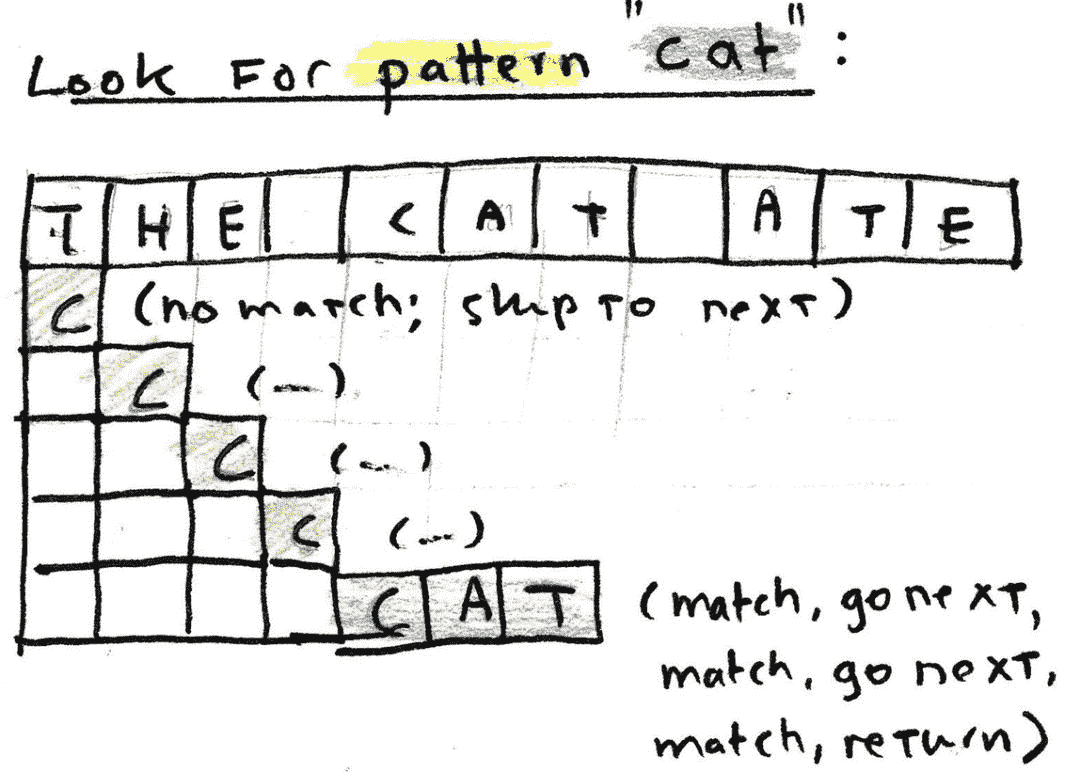 Look For pattern "cat":
T H E C A T A T E
C (no match; skip to next)
C (...)
C (...)
C (...)
C A T (match, go next,
match, go next,
match, return)